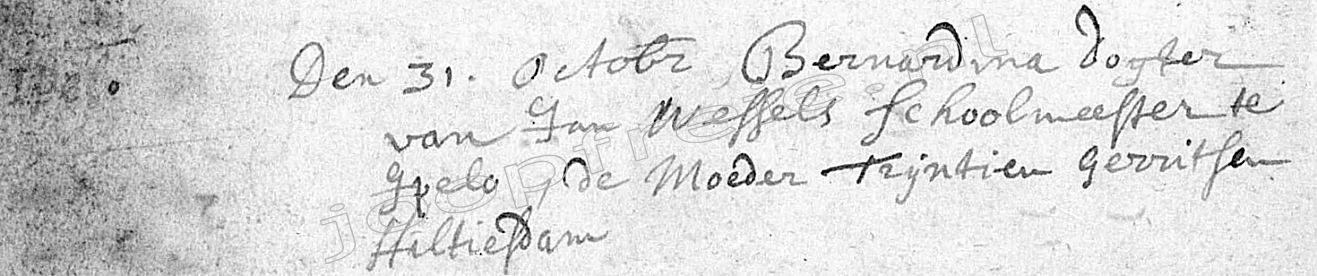 Den 31. Octobr Bernardina dogter
van Jan Wessels schoolmeester te
Ypelo, de Moeder Trijntien Gerritsen
Hiltiesdam